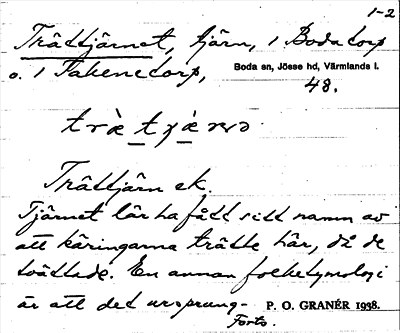 1-2
Trättjärnet, tjärn, i Boda torp
o. i Takenetorp, Boda sn, Jösse hd, Värmlands l.
48.
Trättjärn ek.
Tjärnet lär ha fått sitt namn av
att käringarna trätte här, då de
tvättade. En annan folketymologi
är att det ursprung- P. O. GRANÉR 1938.
Forts.